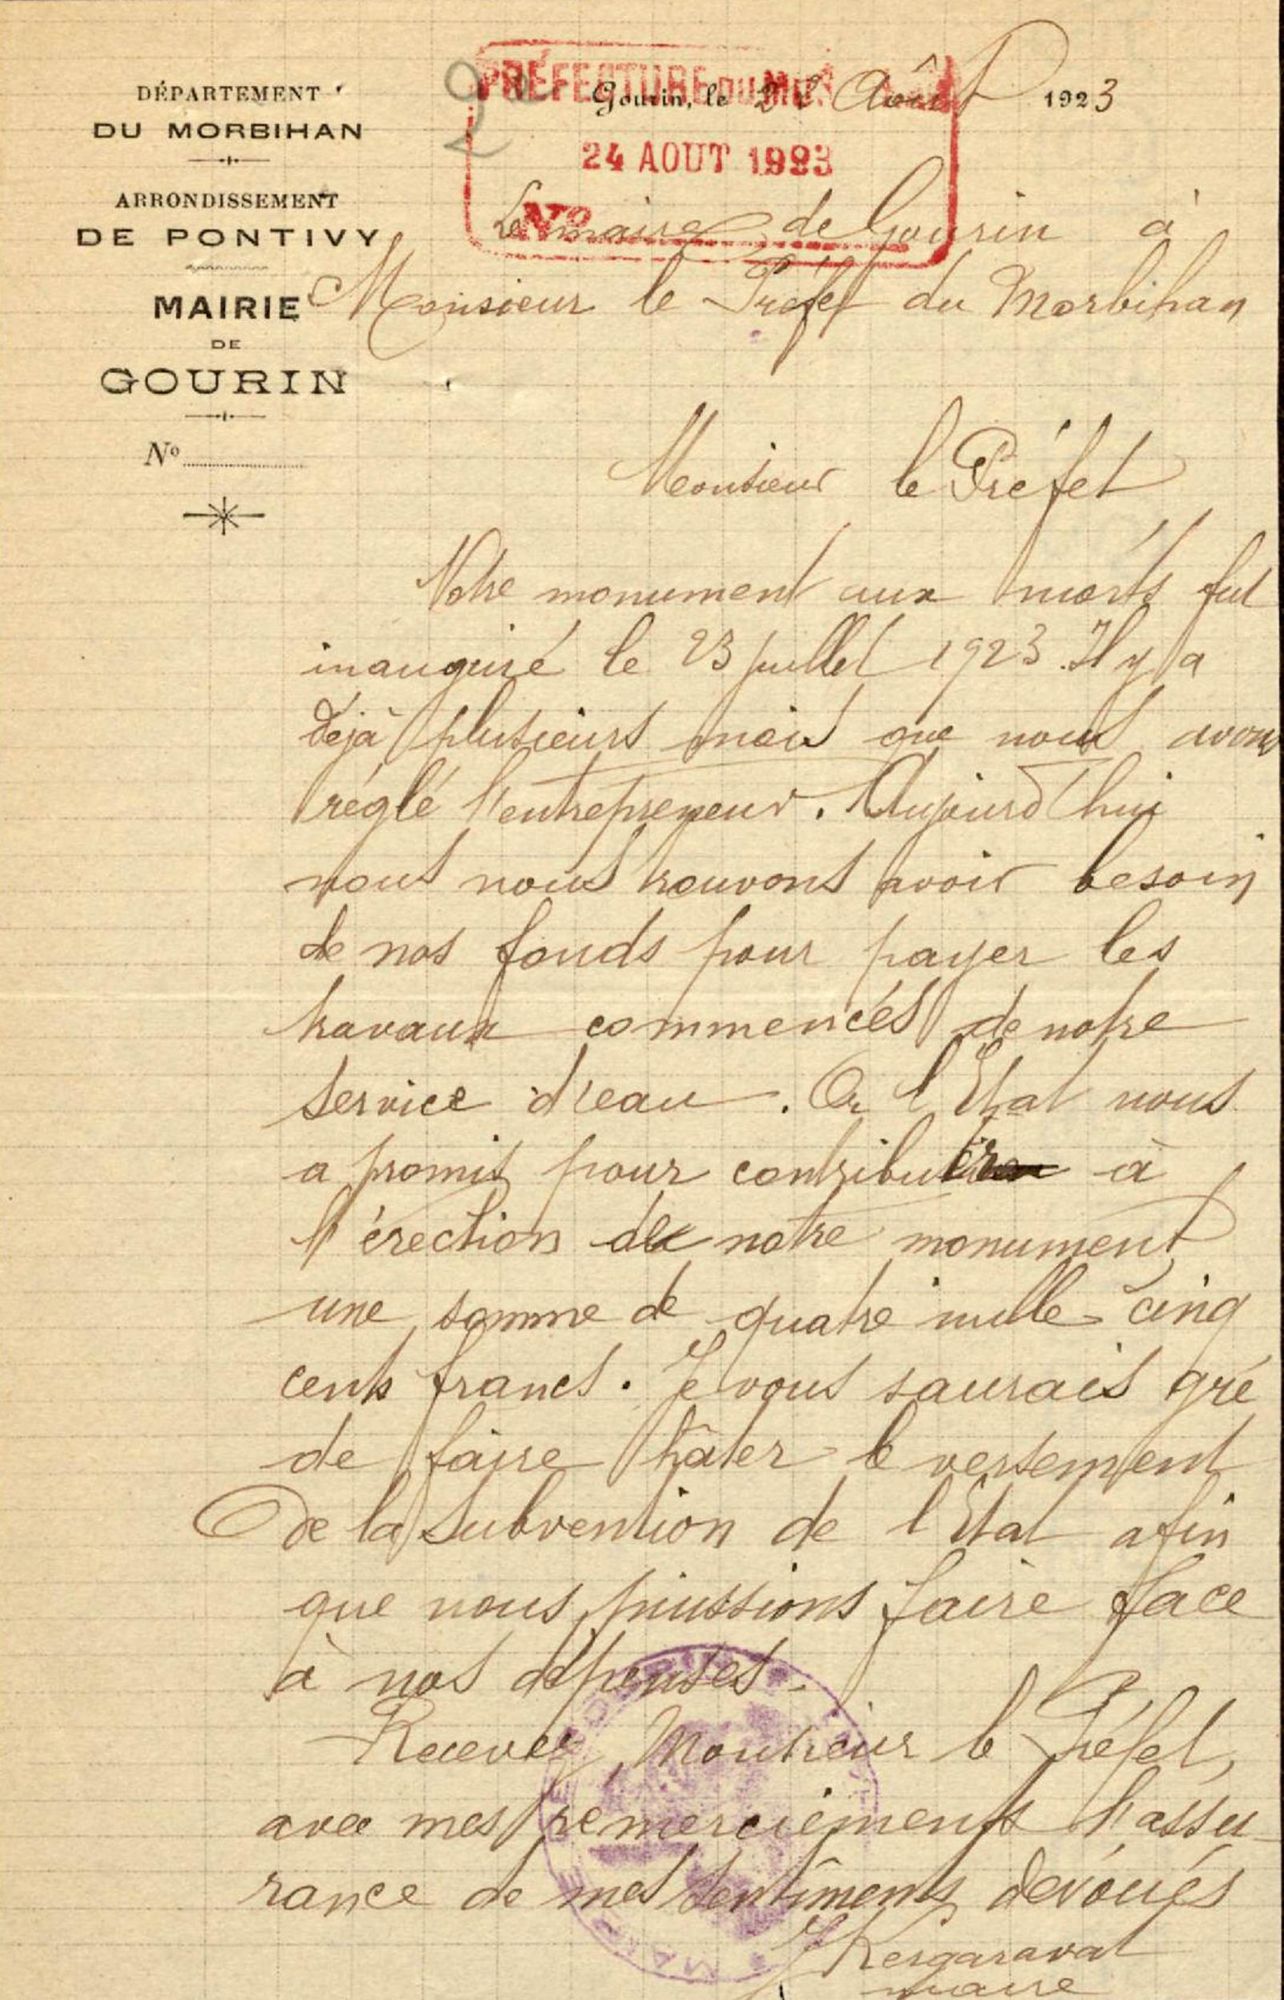 DÉPARTEMENT
DU MORBIHAN
ARRONDISSEMENT
DE PONTIVY
MAIRIE
DE
GOURIN
Nº
PRÉFECTURE DU MOR
24 AOUT 1923
Nº
Gourin, le Août 1923
Le maire de Gourin à
Monsieur le Préfet du Morbihan
Monsieur le Préfet,
Notre monument aux morts fut
inauguré le 23 juillet 1923. Il y a
déjà plusieurs mois que nous avons
réglé l'entrepreneur. Aujourd'hui
nous nous trouvons avoir besoin
de nos fonds pour payer les
travaux commencés de notre
service d'eau. Or l'Etat nous
a promis pour contribuer à
l'érection de notre monument
une somme de quatre mille cinq
cents francs. Je vous saurais gré
de faire hâter le versement
de la subvention de l'Etat afin
que nous puissions faire face
à nos dépenses.
Recevez, Monsieur le Préfet,
avec mes remerciements l'assu-
rance de mes sentiments dévoués
Kergaravat
maire
MAIRIE DE GOURIN